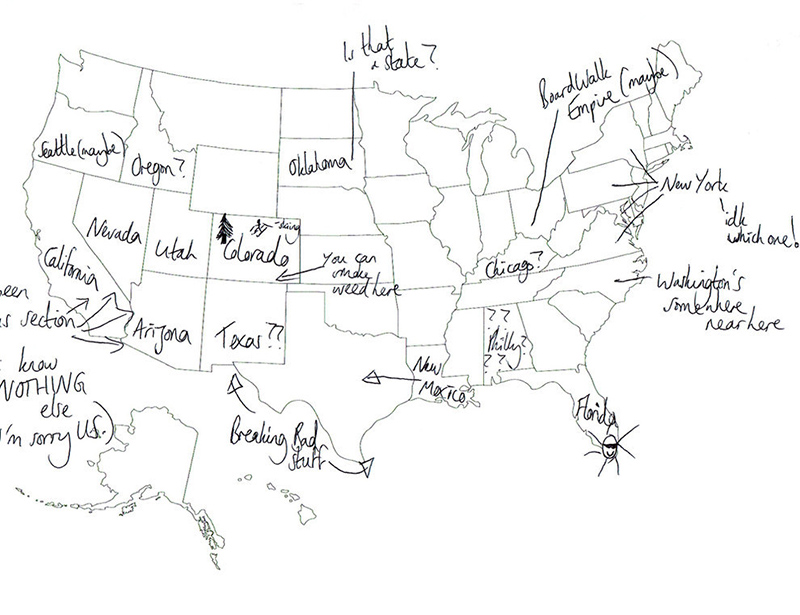 Is that
a state?
BoardWalk
Empire (maybe)
Seattle (maybe)
Oregon?
Oklahoma
New York
idk
which one!
Nevada
Utah
-skiing
Colorado
California
You can
smoke
weed here
Chicago?
Washington's
somewhere
near here
been
s section
Arizona
Texas??
??
Philly?
??
New
Mexico
know
NOTHING
else
I'm sorry U.S.)
Breaking Bad
stuff
Florida